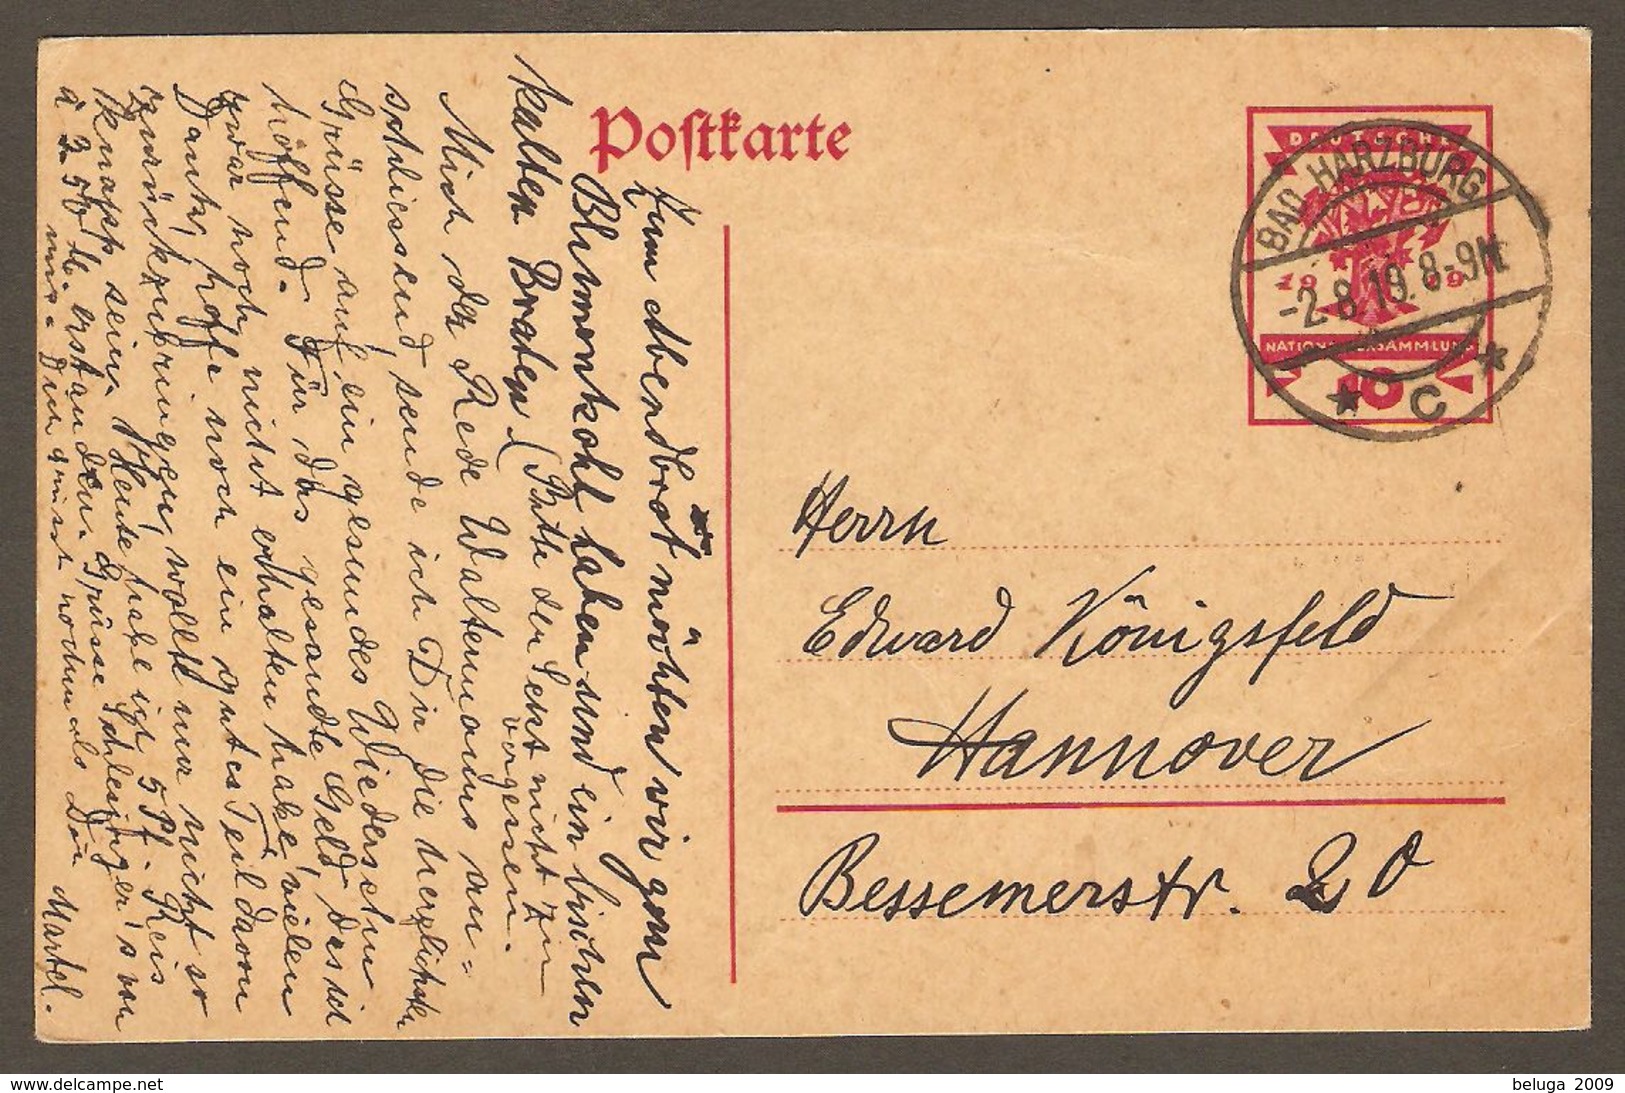 Postkarte
DEUTSCHE
1919
NATIONALVERSAMMLUNG
10
BAD HARZBURG
-2.8.19. 8-9N
* C *
Herrn
Edward Königsfeld
Hannover
Bessemerstr. 20
Zum Abendbrot möchten wir gern
Blumenkohl haben und ein bischen
kalten Braten (Bitte den Sekt nicht zu
vergessen.
Mich der Rede Waltemanns an=
schliessend, sende ich Dir die herzlichsten
Grüsse auf ein gesundes Wiedersehn
hoffend. Für das gesandte Geld, das ich
zwar noch nicht erhalten habe, vielen
Dank, hoffe noch ein gutes Teil davon
zurückzubringen, wollt nur nicht so
knapp sein. Heute habe ich 5 Pf. Reis
à 2.50 M. erstanden. Grüsse Schlesinger's von
mir. Dun grüsst nochmals Dein
Martel.
delcampe.net
beluga 2009